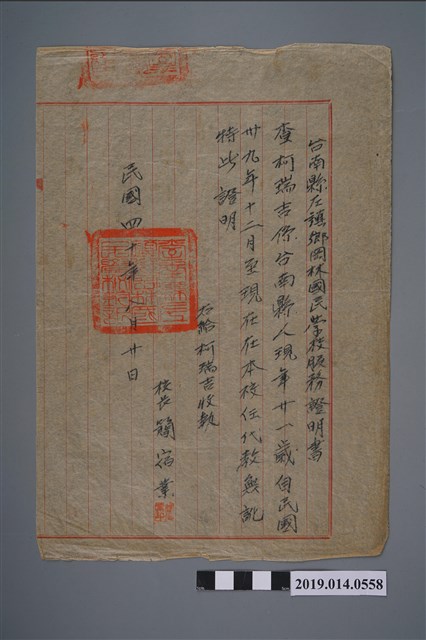 台南縣左鎮鄉岡林國民學校服務證明書
查柯瑞吉係台南縣人現年廿一歲自民國
卅九年十二月至現在在本校任代教無訛
特此證明
右給柯瑞吉收執
校長 簡宿業
民國四十年八月廿日
2019.014.0558